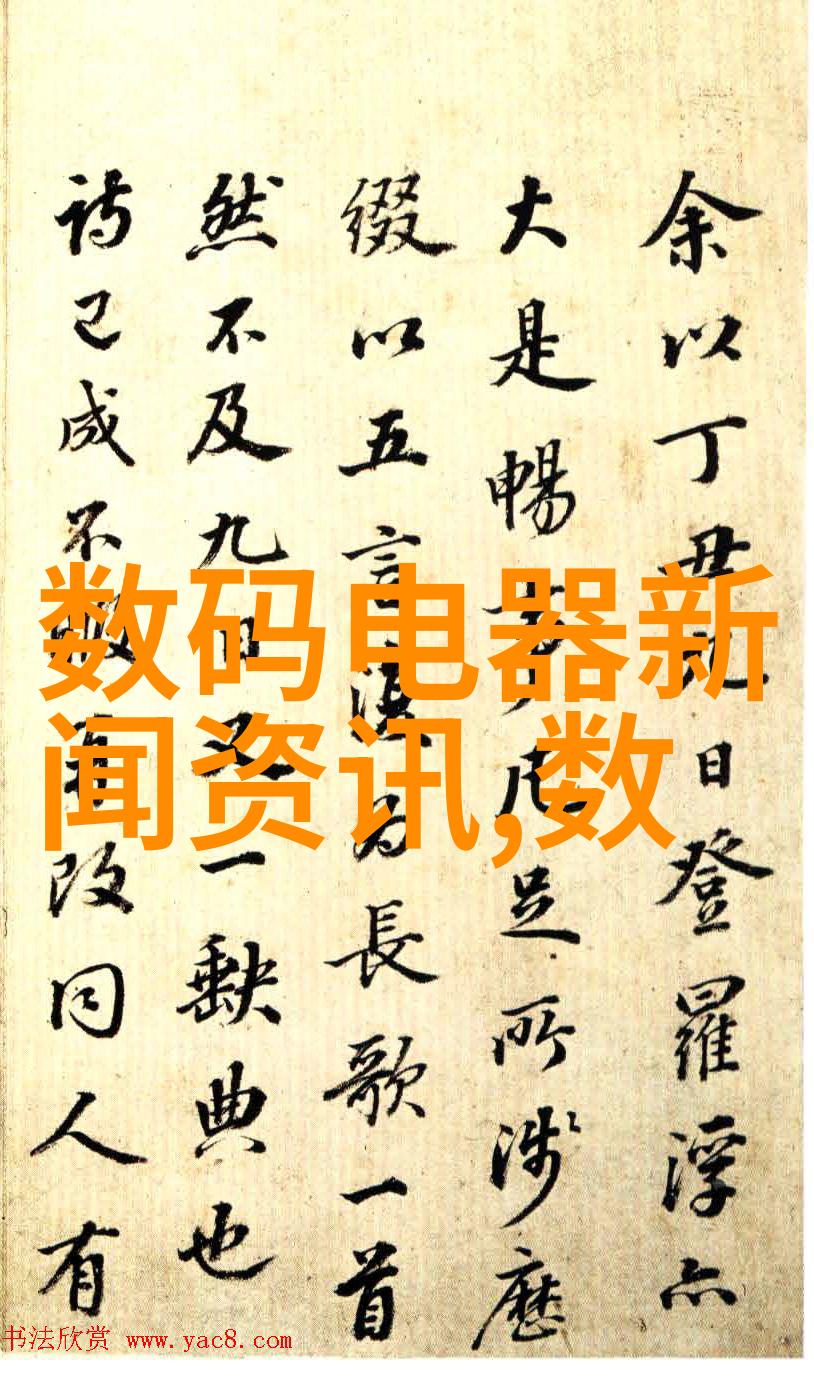 余以丁丑九日登羅浮亦
大是暢足所涉歷
綴以五言漢為長歌一首
然不及九日又一缺典也
詩已成不改同人有
数码电器新
闻资讯,数
书法欣赏 www.yac8.com